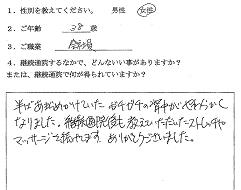 1. 性別を教えてください。 男性 女性
2. ご年齢 38 歳
3. ご職業 会社員
4. 継続通院するなかで、どんないい事がありますか?
または、継続通院で何が得られていますか?
半ばあきらめかけていた ガチガチの背中が やわらかく
なりました。継続通院後も 教えていただいたストレッチや
マッサージで 続けます ありがとうございました。